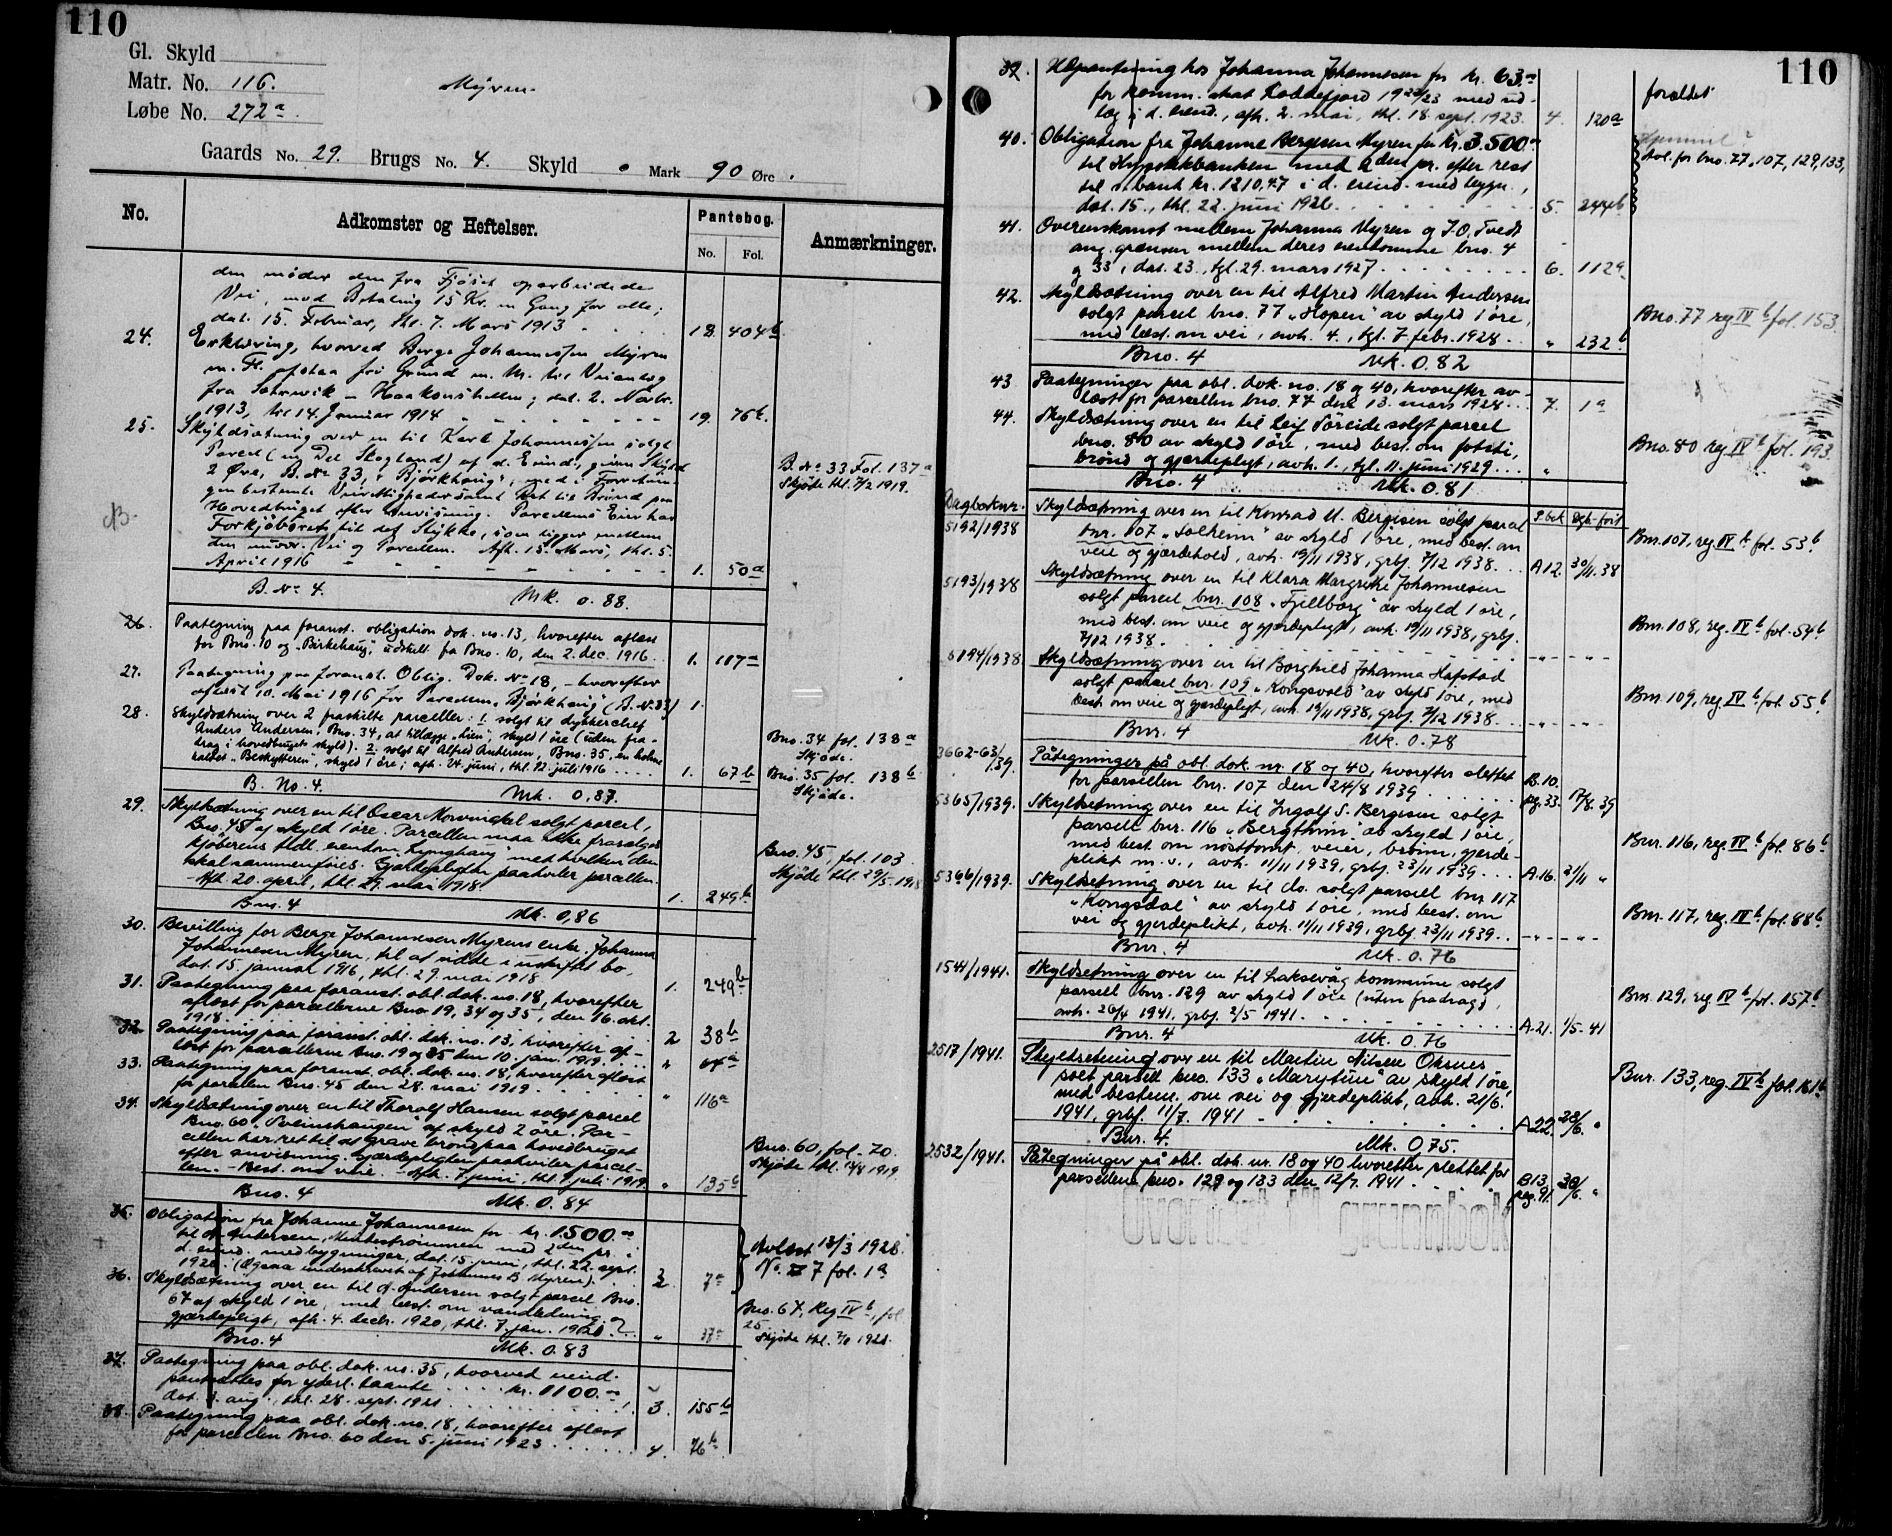 110
Gl. Skyld
Matr. No. 116.
Myren.
Løbe No. 272a.
Gaards No. 29. Brugs No. 4. Skyld 0 Mark 90 Øre.
No. Adkomster og Heftelser. Pantebog. Anmærkninger.
No. Fol.
den møder den fra Fjøset oparbeidede
Vei, mod Betaling 15 Kr. en Gang for alle;
dat. 15. Februar, thl. 7. Mars 1913 18. 404b
24. Erklæring, hvorved Berge Johannessen Myren
m. Fl. afstaa fri Grund m. M. til Veianlæg
fra - Haakonshellen; dat. 2. Novbr.
1913, thl. 14. Januar 1914 19. 76b.
25. Skyldsætning over en til Karl Johannessen solgt
Parcel (ny Del Skogland) af d. Eiend., givin Skyld
2 Øre, B. No 33, "Bjørkhaug", med Forretnin-
gen bestemte Veirettigheder samt Ret til Brønd paa
Hovedbruget efter Anvisning. Parcellens Eier har
Forkjøbsret til det Stykke, som ligger mellem
den nuvær. Vei og Parcellen. Afh. 15. Mars, thl. 5.
April 1916 1. 50a
B. No 33 Fol. 137a
Skjøde thl. 7/2 1919.
B. No 4. Mk. 0.88.
26. Paategning paa foranst. obligation dok. no. 13, hvorefter aflæst
for Bno. 10 og "Birkehaug", udskilt fra Bno. 10, den 2. dec. 1916. 1. 117a
27. Paategning paa foranst. Oblig. Dok. No 18, - hvorefter
aflæst 10. Mai 1916 for Parcellen "Bjørkhaug" (B. No 33) 1.
28. Skyldsætning over 2 fraskilte parceller: 1. solgt til dykkerchef
Anders Andersen, Bno. 34, at tillægge hien, skyld 1 øre (uden fra-
drag i hovedbrugets skyld). 2. solgt til Alfred Andersen, Bno. 35, en holme
kaldet "Beskytteren", skyld 1 øre; afh. 24. juni, thl. 12. juli 1916 1. 67b
Bno. 34 fol. 138a
Skjøde.
Bno. 35 fol. 138b
Skjøde.
B. No. 4. Mk. 0,87.
29. Skyldsætning over en til Oscar Mowinckel solgt parcel,
Bno. 45 af skyld 1 øre. Parcellen maa ikke frasælges
kjøberens tidl. eiendom "Lynghaug" med hvilken den
skal sammenføies. Gjerdepligten paahviler parcellen.
- Afh. 20. april, thl. 29. mai 1918 1. 249b
Bno. 45, fol. 103.
Skjøde thl. 29/5 1918
Bno. 4 Mk. 0,86
30. Bevilling for Berge Johannesen Myrens enke, Johanna
Johannesen Myren, til at sidde i uskiftet bo,
dat. 15. januar 1916, thl. 29. mai 1918 1. 249b
31. Paategning paa foranst. obl. dok. no. 18, hvorefter
aflæst for parcellerne Bno 19, 34 og 35, den 16. okt.
1918. 2 38b
32. Paategning paa foranst. obl. dok. no. 13, hvorefter af-
læst for parcellerne Bno. 19 og 35 den 10. jan. 1919 " 64a
33. Paategning paa foranst. obl. dok. no. 18, hvorefter aflæst
for parcellen Bno. 45 den 28. mai 1919. " 116a
34. Skyldsætning over en til Thorolf Hansen solgt parcel
Bno. 60. "Sveinshaugen" af skyld 2 øre. Par-
cellen har ret til at grave brønd paa hovedbruget
efter anvisning. Gjerdepligten paahviler parcel-
len. - Best. om veie. - Afh. 7. juni, thl. 9. juli 1919. " 135b
Bno. 60, fol. 70.
Skjøde thl. 13/8 1919.
Bno. 4 Mk. 0.84
35. Obligation fra Johanne Johannesen for kr. 1500.00
til A. Andersen, med 2den pr. i
d. eiend. med bygninger, dat. 15. juni, thl. 22. sept.
1920. (Ogsaa underskrevet af Johannes B. Myren). 3 7a
Avlæst 13/3 1928.
No. 7 fol. 1a
36. Skyldsætning over en til A. Andersen solgt parcel Bno.
67 af skyld 1 øre, med best. om vandledning og
gjærdepligt, afh. 4. decb. 1920, thl. 7. jan. 1921 " 37a
Bno. 67, Reg IVb, fol
25
Skjøde thl. 1921.
Bno. 4 Mk. 0.83
37. Paategning paa obl. dok. no. 35, hvorved eiend.
pantsættes for yderl. laante kr. 1100.00
dat. 3. aug., thl. 28. sept. 1921 3. 155b
38. Paategning paa obl. dok. no. 18, hvorefter aflæst
for parcellen Bno. 60 den 5. juni 1923 4. 76b
110
39. Udpantning hos Johanna Johannesen for kr. 63.00
for komm. skat Laddefjord 1922/23 med ud-
læg i d. eiend., afh. 2. mai, thl. 18. sept. 1923. 4. 120a
forældet
40. Obligation fra Johanne Bergesen Myren for kr. 3.500.00
til Hypotekbanken med 2den pr. efter rest
til s. bank kr. 1210,47 i d. eiend. med bygn.,
dat. 15., thl. 22. juni 1926. 5. 244b
Avl. for bno. 77, 107, 129, 133,
41. Overenskomst mellem Johanna Myren og J. O. Tvedt
ang. grænsen mellem deres eiendomme bno. 4
og 33, dat. 23., tgl. 29. mars 1927. 6. 112a
42. Skyldsætning over en til Alfred Martin Andersen
solgt parcel bno. 77 "Hopen" av skyld 1 øre,
med best. om vei, avh. 4., tgl. 7. febr. 1928. " 232b
Bno. 77 reg IVb fol. 153.
Bno. 4 Mk. 0.82
43 Paategninger paa obl. dok. no. 18 og 40, hvorefter av-
læst for parcellen bno. 77 den 13. mars 1928 7. 1a
44. Skyldsætning over en til Leif Søreide solgt parcel
bno. 80 av skyld 1 øre, med best. om fotsti,
brønd og gjærdepligt, avh. 1., tgl. 11. juni 1929. "
Bno. 80 reg IVb fol. 193.
Bno. 4 Mk. 0.81
Dagboknr. P.bok Dgb-ført
5192/1938 Skyldsetning over en til Konrad M. Bergesen solgt parcel
bnr. 107 "Solheim" av skyld 1 øre, med best. om
veie og gjærdehold, avh. 19/11 1938, grbf. 7/12 1938. A12. 30/11.38
Bnr. 107, reg IVb fol. 53b.
5193/1938 Skyldsetning over en til Klara Margrethe Johannesen
solgt parcel bnr. 108 "Fjellborg" av skyld 1 øre,
med best. om veie og gjærdepligt, avh. 19/11 1938, grbf.
7/12 1938. -"- -"-
Bnr. 108, reg. IVb fol. 54b
5194/1938 Skyldsetning over en til Borghild Johanna Hafstad
solgt parcel bnr. 109 "Kongsvold" av skyld 1 øre, med
best. om veie og gjærdepligt, avh. 19/11 1938, grbf. 7/12 1938. -"- -"-
Bnr. 109, reg IVb fol. 55b
Bnr. 4 Mk. 0.78
3662-63/1939. Påtegninger på obl. dok. nr. 18 og 40, hvorefter slettet
for parsellen bnr. 107 den 24/8 1939 B.10. pg. 33. 17/8.39
5365/1939. Skyldsetning over en til Ingolf S. Bergesen solgt
parsell bnr. 116 "Bergthim" av skyld 1 øre,
med best. om nøsttomt, veier, brønn, gjerde-
plikt m. v., avh. 11/11 1939, grbf. 23/11 1939. A.16. 21/11 "
Bnr. 116, reg IVb fol. 86b
5366/1939. Skyldsetning over en til do. solgt parsell bnr 117
"Kongsdal" av skyld 1 øre, med best. om
vei og gjerdeplikt, avh. 11/11 1939, grbf. 23/11 1939. -"- -"-
Bnr. 117, reg. IVb fol. 88b
Bnr. 4 Mk. 0.76
1541/1941. Skyldsetning over en til Laksevåg kommune solgt
parsell bnr. 129 av skyld 1 øre (uten fradrag),
avh. 26/4 1941, grbf. 2/5 1941. A.21. 1/5.41
Bnr. 129, reg IVb fol. 157b
Bnr. 4 Mk. 0.76
2517/1941. Skyldsetning over en til Martin Nilsen Oksnes
solt parsell bno. 133 "Marytun" av skyld 1 øre
med bestem. om vei og gjerdeplikt, avh. 21/6.
1941, grbf. 11/7. 1941 A22. 28/6. "
Bnr. 133, reg. IVb fol. 161b
Bnr. 4. Mk. 0,75.
2532/1941. Påtegninger på obl. dok. nr. 18 og 40 hvoretter slettet for
parsellene bno. 129 og 133 den 12/7. 1941 B13. pag. 91. 28/6. "
Overført til grunnbok